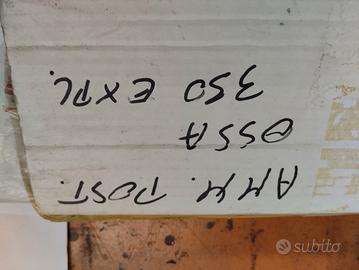 AMM. POST.
OSSA
350 EXPL.
subito